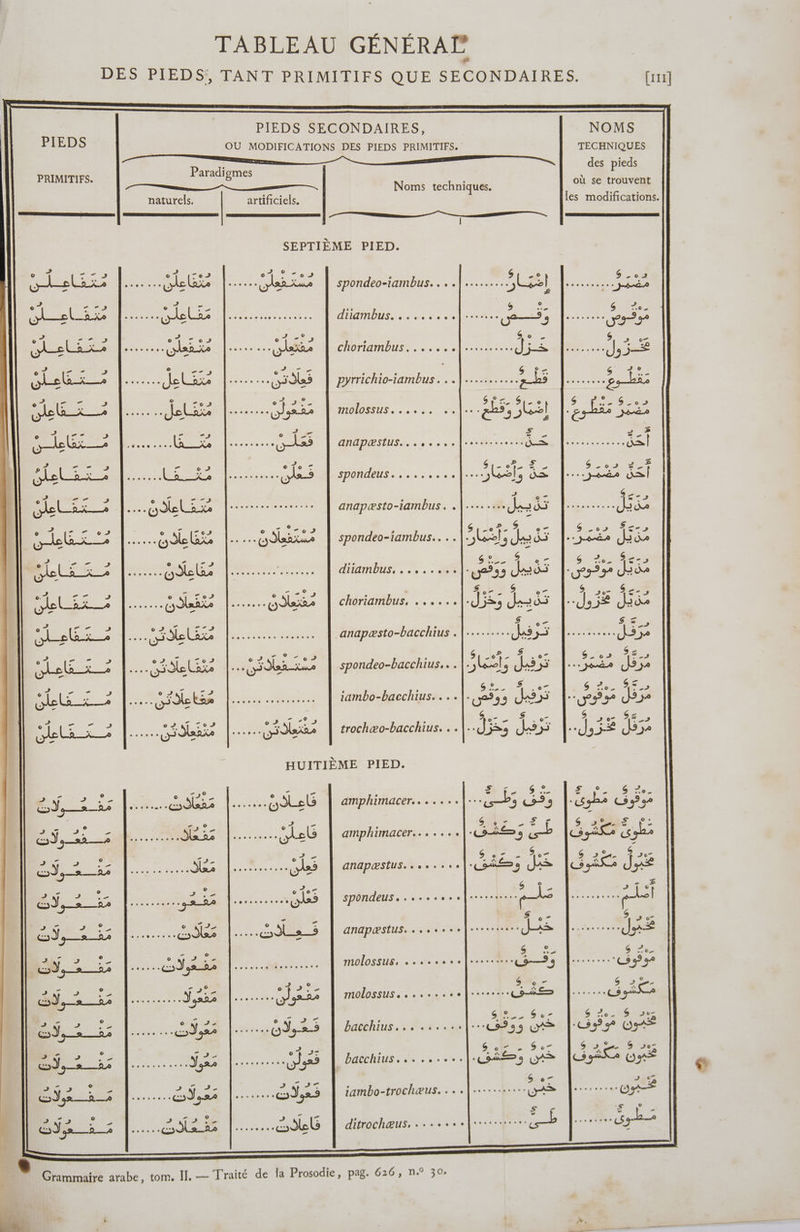 TABLEAU GÉNÉRAL
DES PIEDS, TANT PRIMITIFS QUE SECONDAIRES. [III]
PIEDS PRIMITIFS.
PIEDS SECONDAIRES,
OU MODIFICATIONS DES PIEDS PRIMITIFS.
Paradigmes
naturels. artificiels.
Noms techniques.
NOMS
TECHNIQUES
des pieds
où se trouvent
les modifications.
SEPTIÈME PIED.
مُتَفَاعِلُنْ ........ مُتْفَاعِلُنْ ...... مُسْتَفْعِلُنْ spondeo-iambus.... إِضْمَارٌ ......... مُضْمَرٌ
مُتَفَاعِلُنْ ....... مُفَاعِلُنْ ............... diiambus......... وَقْصٌ ........ مَوْقُوصٌ
مُتَفَاعِلُنْ ........ مُتَفْعِلُنْ ....... مُفْتَعِلُنْ choriambus....... خَزْلٌ ........ مَخْزُولٌ
مُتَفَاعِلُنْ ....... مُتَفَاعِلْ ........ فَعِلَاتُنْ pyrrichio-iambus... قَطْعٌ ........ مَقْطُوعٌ
مُتَفَاعِلُنْ ....... مُتْفَاعِلْ ........ مَفْعُولُنْ molossus...... إِضْمَارٌ وَقَطْعٌ مُضْمَرٌ مَقْطُوعٌ
مُتَفَاعِلُنْ ......... مُتَفَا ......... فَعِلُنْ anapæstus........ حَذٌّ ............ أَحَذُّ
مُتَفَاعِلُنْ ....... مُتْفَا .......... فَعْلُنْ spondeus......... حَذٌّ وَإِضْمَارٌ ... أَحَذُّ مُضْمَرٌ
مُتَفَاعِلُنْ .... مُتَفَاعِلَانْ ............... anapæsto-iambus.. تَذْيِيلٌ .......... مُذَيَّلٌ
مُتَفَاعِلُنْ ...... مُتْفَاعِلَانْ ..... مُسْتَفْعِلَانْ spondeo-iambus.... تَذْيِيلٌ وَإِضْمَارٌ مُذَيَّلٌ مُضْمَرٌ
مُتَفَاعِلُنْ ....... مُفَاعِلَانْ ............... diiambus......... تَذْيِيلٌ وَوَقْصٌ مُذَيَّلٌ مَوْقُوصٌ
مُتَفَاعِلُنْ ....... مُتَفْعِلَانْ ....... مُفْتَعِلَانْ choriambus....... تَذْيِيلٌ وَخَزْلٌ مُذَيَّلٌ مَخْزُولٌ
مُتَفَاعِلُنْ .... مُتَفَاعِلَاتُنْ ............... anapæsto-bacchius. تَرْفِيلٌ ........... مُرَفَّلٌ
مُتَفَاعِلُنْ .... مُتْفَاعِلَاتُنْ ... مُسْتَفْعِلَاتُنْ spondeo-bacchius... تَرْفِيلٌ وَإِضْمَارٌ مُرَفَّلٌ مُضْمَرٌ
مُتَفَاعِلُنْ ..... مُفَاعِلَاتُنْ ............... iambo-bacchius.... تَرْفِيلٌ وَوَقْصٌ مُرَفَّلٌ مَوْقُوصٌ
مُتَفَاعِلُنْ ...... مُتَفْعِلَاتُنْ ...... مُفْتَعِلَاتُنْ trochæo-bacchius... تَرْفِيلٌ وَخَزْلٌ مُرَفَّلٌ مَخْزُولٌ
HUITIÈME PIED.
مَفْعُولَاتُ ........ مَفْعَلَاتْ ....... فَاعِلَانْ amphimacer....... وَقْفٌ وَطَىٌّ مَوْقُوفٌ مَطْوِىٌّ
مَفْعُولَاتُ .......... مَفْعَلَا ......... فَاعِلُنْ amphimacer....... طَىٌّ وَكَشْفٌ مَطْوِىٌّ مَكْشُوفٌ
مَفْعُولَاتُ ........... مَعَلَا ........... فَعِلُنْ anapæstus........ خَبْلٌ وَكَشْفٌ مَخْبُولٌ مَكْشُوفٌ
مَفْعُولَاتُ .......... مَفْعُو ........... فَعْلُنْ spondeus......... صَلْمٌ ......... أَصْلَمُ
مَفْعُولَاتُ ......... مَعَلَاتُ ..... فَعِلَاتُ anapæstus........ خَبْلٌ ........... مَخْبُولٌ
مَفْعُولَاتُ ...... مَفْعُولَاتْ ............ molossus......... وَقْفٌ ......... مَوْقُوفٌ
مَفْعُولَاتُ .......... مَفْعُولَا ........ مَفْعُولُنْ molossus......... كَشْفٌ ......... مَكْشُوفٌ
مَفْعُولَاتُ ........ مَعُولَاتْ ....... فَعُولَانْ bacchius......... خَبْنٌ وَوَقْفٌ مَخْبُونٌ مَوْقُوفٌ
مَفْعُولَاتُ ........... مَعُولَا .......... فَعُولُنْ bacchius......... خَبْنٌ وَكَشْفٌ مَخْبُونٌ مَكْشُوفٌ
مَفْعُولَاتُ ........ مَعُولَاتُ ........ فَعُولَاتُ iambo-trochæus.... خَبْنٌ ......... مَخْبُونٌ
مَفْعُولَاتُ ...... مَفْعَلَاتُ ......... فَاعِلَاتُ ditrochæus....... طَىٌّ ......... مَطْوِىٌّ
Grammaire arabe, tom. II. — Traité de la Prosodie, pag. 626, n.° 30.